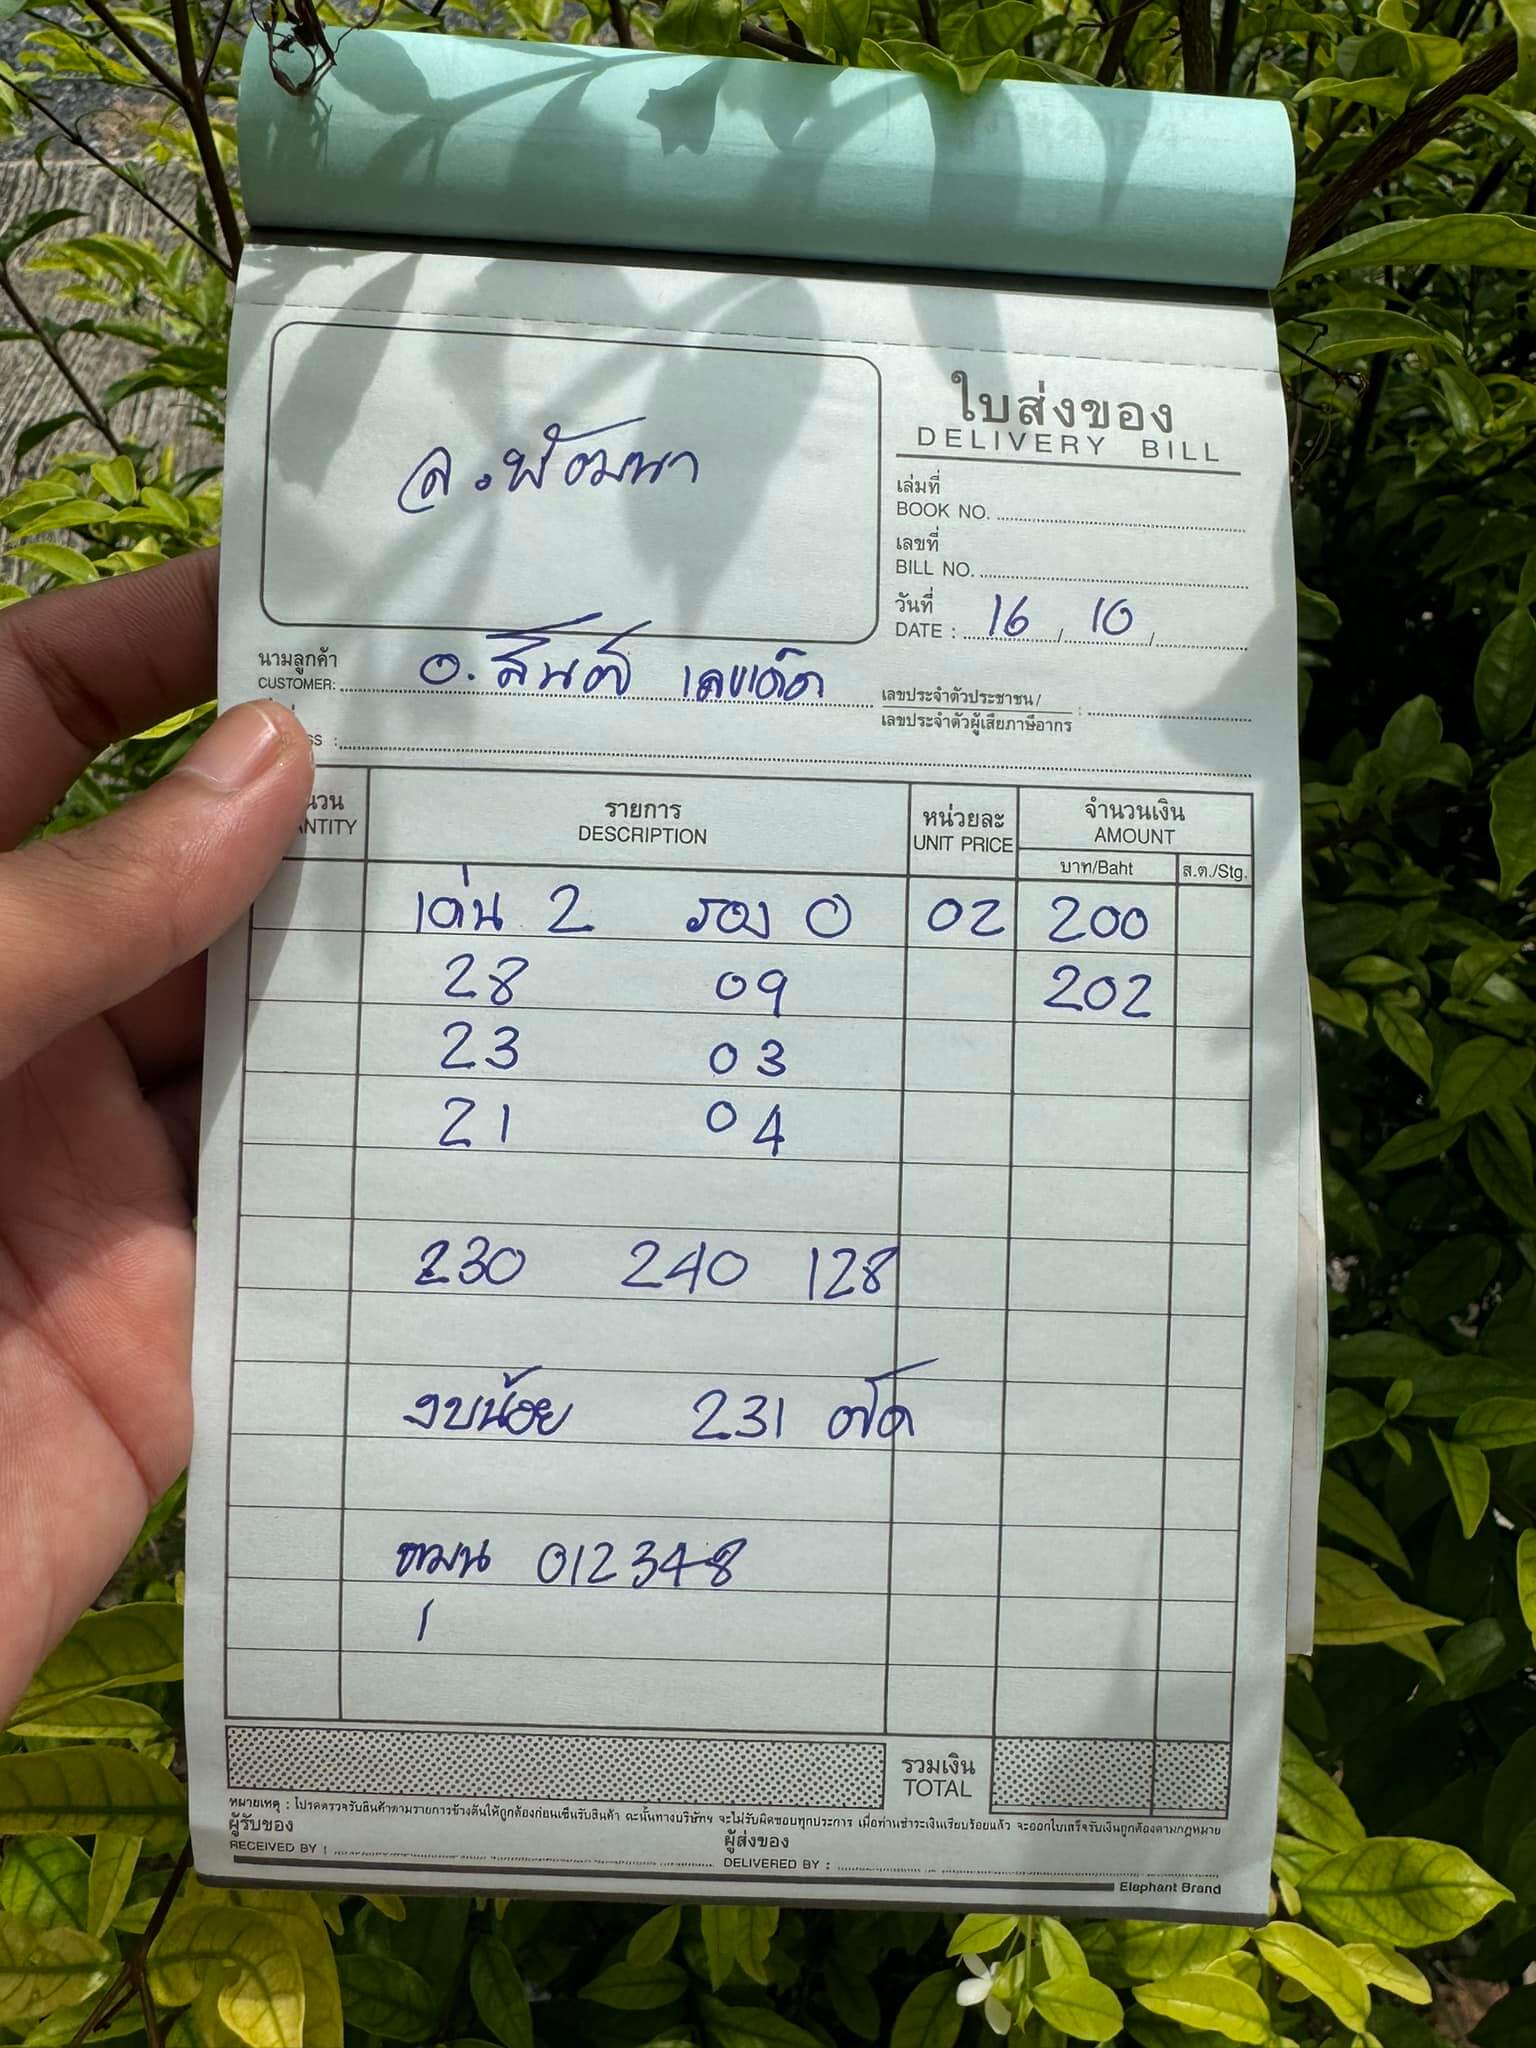 ล.พัฒนา
ใบส่งของ
DELIVERY BILL
เล่มที่
BOOK NO.
เลขที่
BILL NO.
วันที่
DATE : 16 / 10 /
นามลูกค้า
CUSTOMER: อ. สินต์ เลขเด็ด
เลขประจำตัวประชาชน /
เลขประจำตัวผู้เสียภาษีอากร :
รายการ
DESCRIPTION
หน่วยละ
UNIT PRICE
จำนวนเงิน
AMOUNT
บาท/Baht ส.ต./Stg.
เด่น 2 รอง 0 02 200
28 09 202
23 03
21 04
230 240 128
งบน้อย 231 ตัด
หมุน 012348
1
รวมเงิน
TOTAL
หมายเหตุ : โปรดตรวจรับสินค้าตามรายการข้างต้นให้ถูกต้องก่อนเซ็นรับสินค้า ฉะนั้นทางบริษัทฯ จะไม่รับผิดชอบทุกประการ เมื่อท่านชำระเงินเรียบร้อยแล้ว จะออกใบเสร็จรับเงินถูกต้องตามกฎหมาย
ผู้รับของ
RECEIVED BY :
ผู้ส่งของ
DELIVERED BY :
Elephant Brand